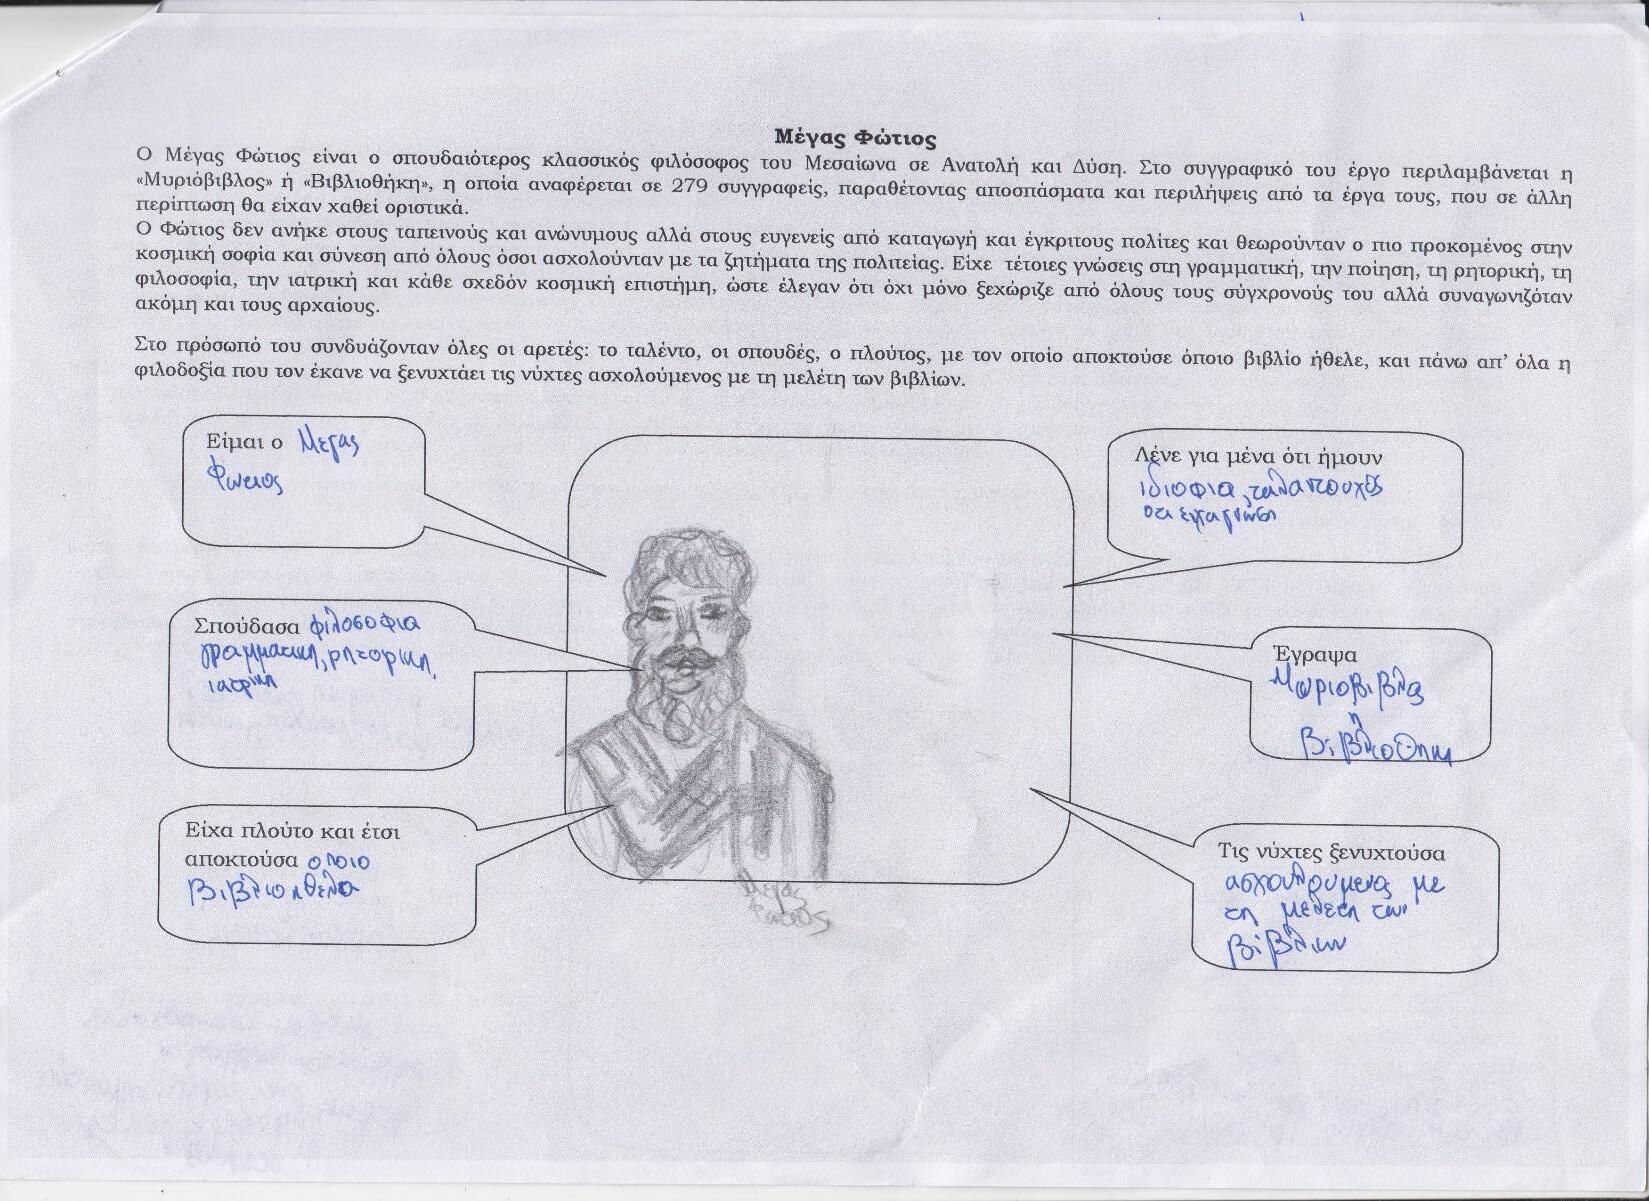 Μέγας Φώτιος
Ο Μέγας Φώτιος είναι ο σπουδαιότερος κλασσικός φιλόσοφος του Μεσαίωνα σε Ανατολή και Δύση. Στο συγγραφικό του έργο περιλαμβάνεται η
«Μυριόβιβλος» ή «Βιβλιοθήκη», η οποία αναφέρεται σε 279 συγγραφείς, παραθέτοντας αποσπάσματα και περιλήψεις από τα έργα τους, που σε άλλη
περίπτωση θα είχαν χαθεί οριστικά.
Ο Φώτιος δεν ανήκε στους ταπεινούς και ανώνυμους αλλά στους ευγενείς από καταγωγή και έγκριτους πολίτες και θεωρούνταν ο πιο προκομένος στην
κοσμική σοφία και σύνεση από όλους όσοι ασχολούνταν με τα ζητήματα της πολιτείας. Είχε τέτοιες γνώσεις στη γραμματική, την ποίηση, τη ρητορική, τη
φιλοσοφία, την ιατρική και κάθε σχεδόν κοσμική επιστήμη, ώστε έλεγαν ότι όχι μόνο ξεχώριζε από όλους τους σύγχρονούς του αλλά συναγωνιζόταν
ακόμη και τους αρχαίους.
Στο πρόσωπό του συνδυάζονταν όλες οι αρετές: το ταλέντο, οι σπουδές, ο πλούτος, με τον οποίο αποκτούσε όποιο βιβλίο ήθελε, και πάνω απ’ όλα η
φιλοδοξία που τον έκανε να ξενυχτάει τις νύχτες ασχολούμενος με τη μελέτη των βιβλίων.
Είμαι ο Μεγας
Φωτιος
Σπούδασα φιλοσοφια
γραμματικη, ρητορικη,
ιατρικη
Είχα πλούτο και έτσι
αποκτούσα οποιο
βιβλιο ηθελα
Μεγας
Φωτιος
Λένε για μένα ότι ήμουν
ιδιοφια, ταλαντουχος
οτι ειχα γνωση
Έγραψα
Μυριοβιβλος
η
Βιβλιοθηκη
Τις νύχτες ξενυχτούσα
με
τη των
βιβλιων